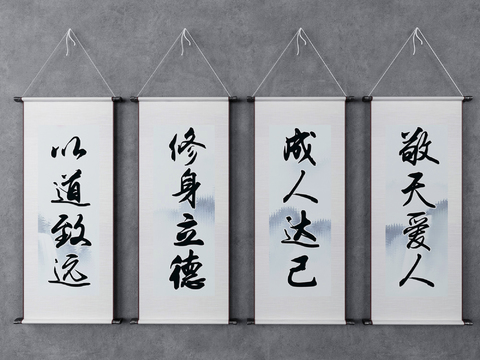 敬天爱人
成人达己
修身立德
以道致远